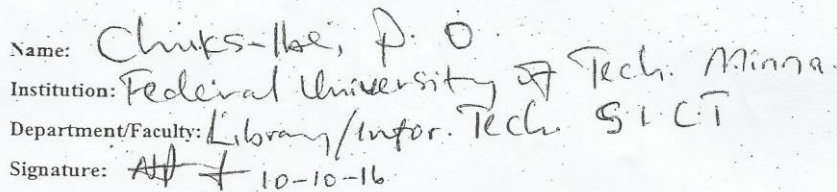 Name: Chuks-Ibe, P. O.
Institution: Federal University of Tech. Minna.
Department/Faculty: Library/Infor. Tech. S.I.C.T
Signature: 10-10-16